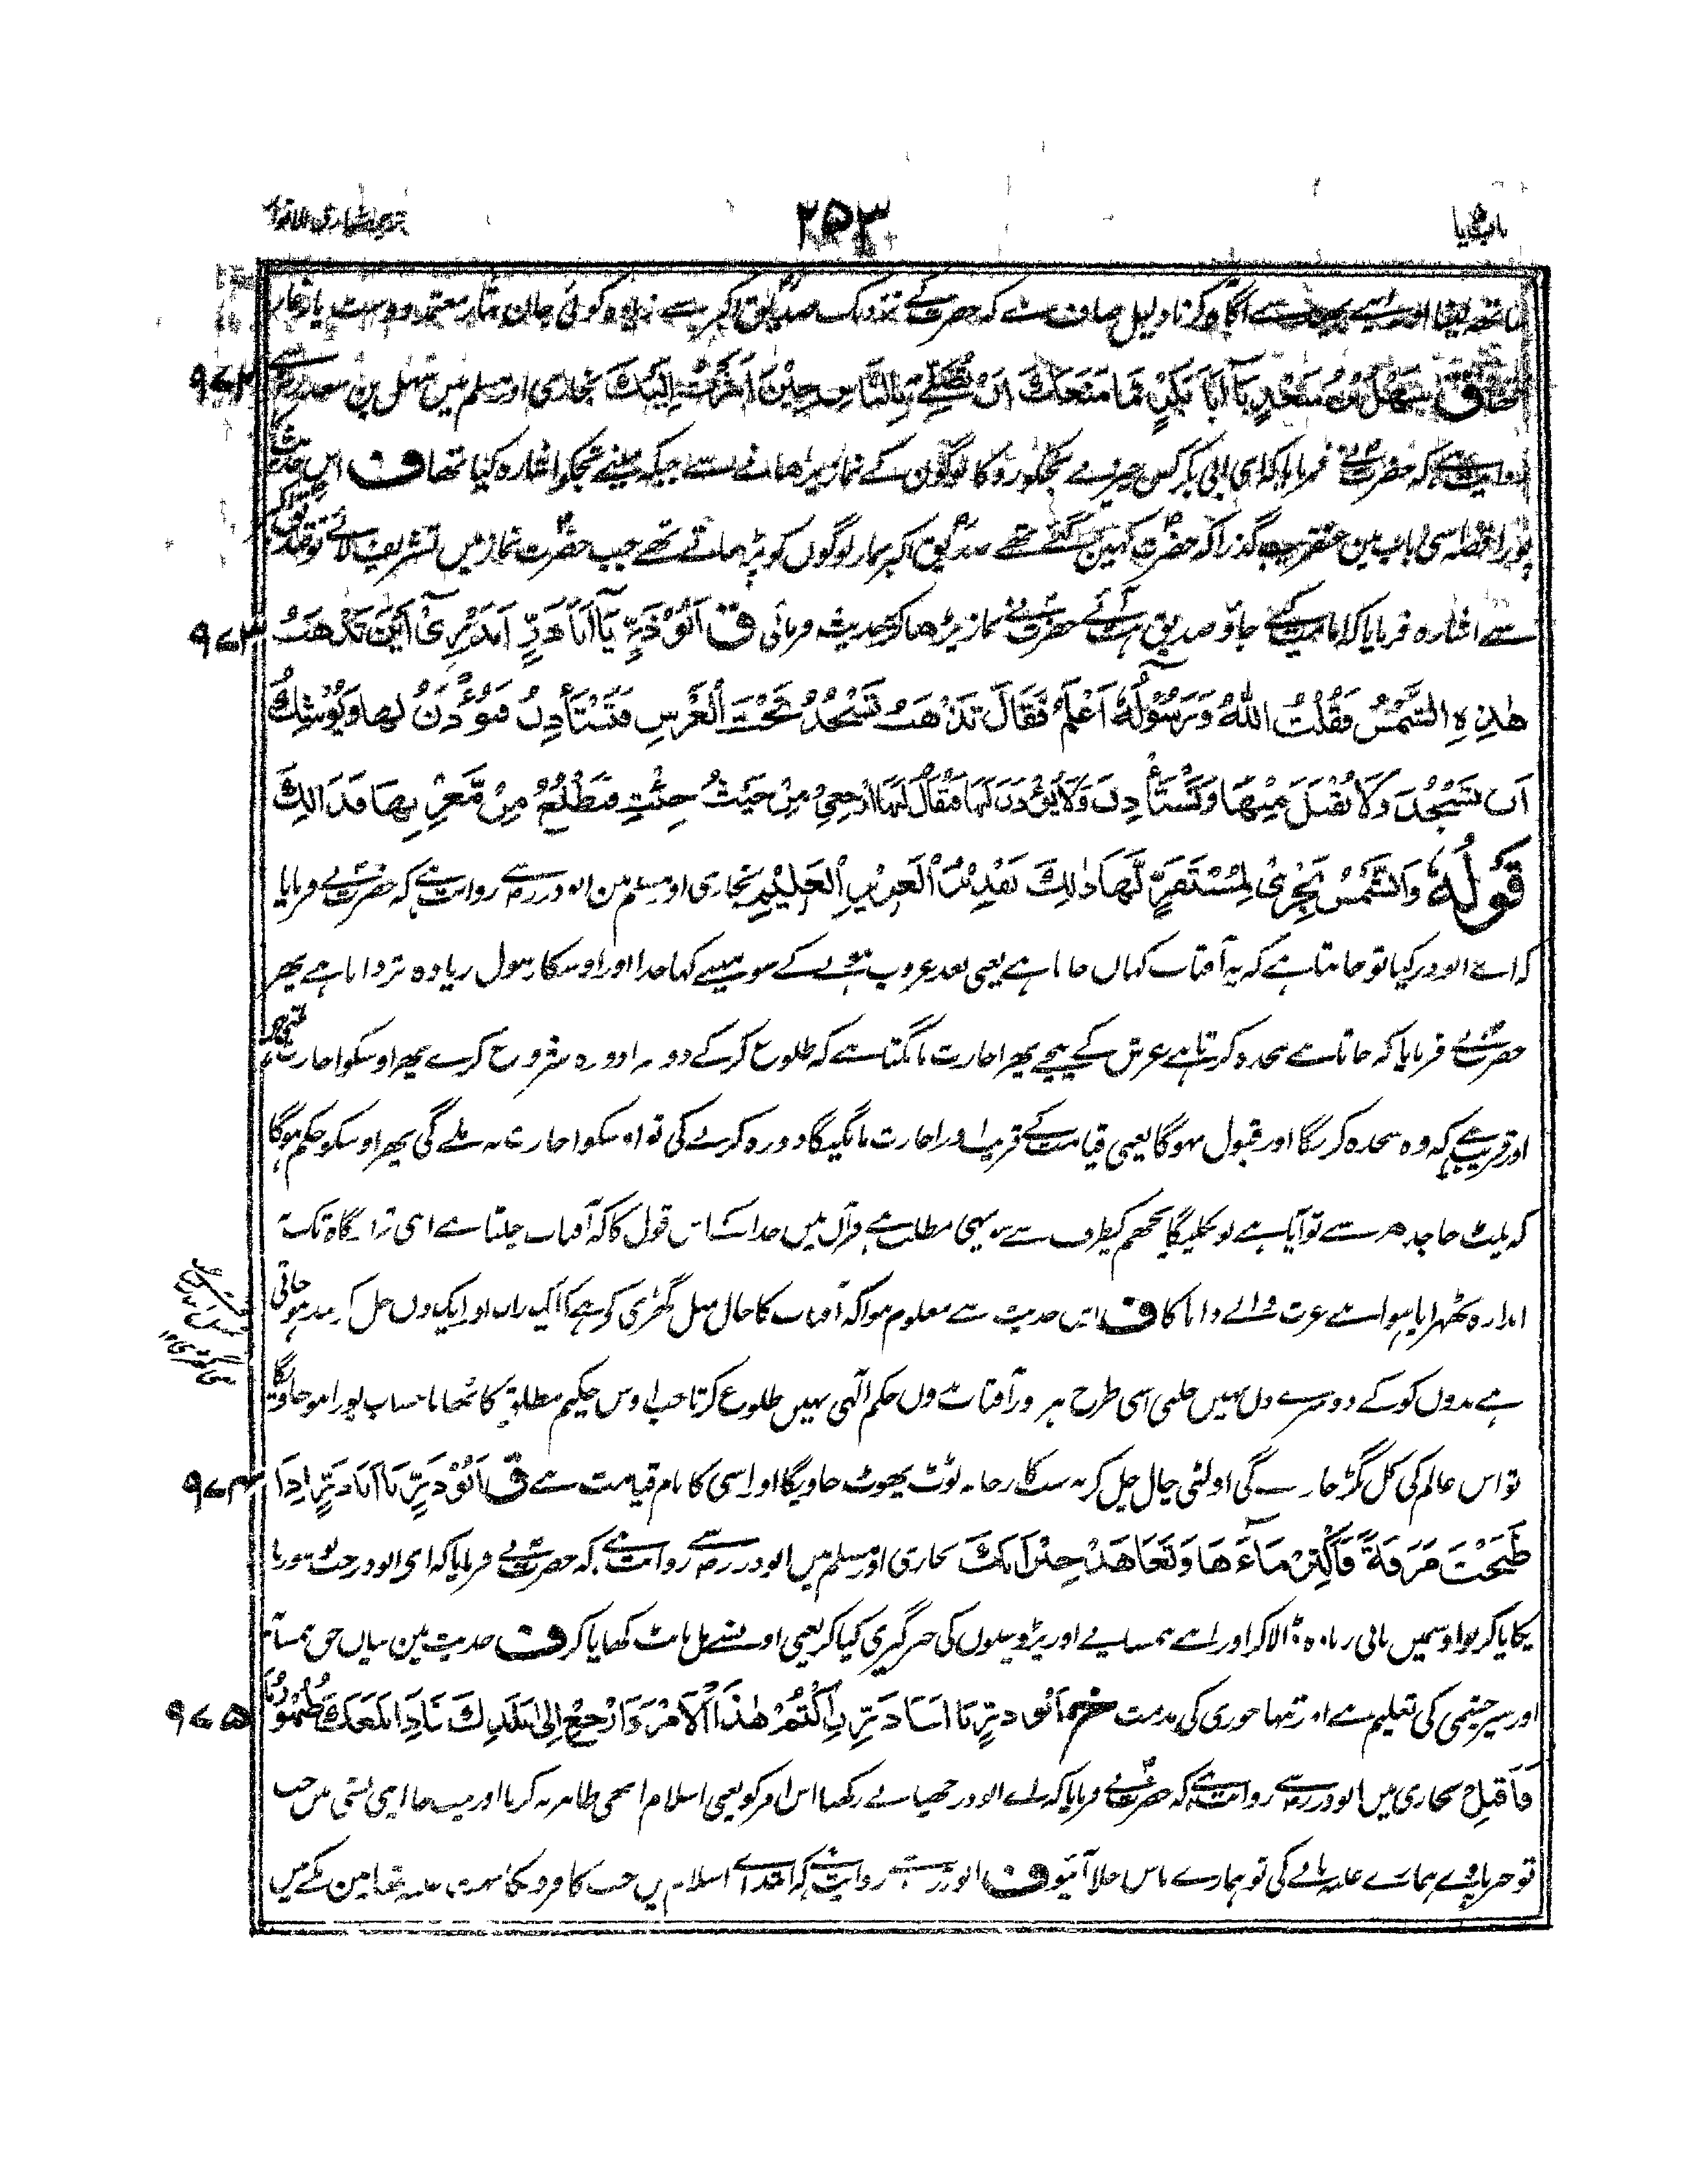 ۲۵۳
ساتھ لینا اور ایسے بھید سے آگاہ کرنا دلیل صاف ہے کہ حضرت کے نزدیک صدیق اکبر سے زیادہ کوئی جان نثار معتمد دوست یار غار
۹۷۲ سَهْلُ بْنُ سَعْدٍ يَا أَبَا بَكْرٍ مَا مَنَعَكَ اَنْ تُصَلِّيَ بِالنَّاسِ حِيْنَ اَشَرْتُ اِلَيْكَ بخاری اور مسلم میں سہل بن سعد سے
روایت ہے کہ حضرت نے فرمایا کہ ای ابی بکر کس چیز نے تجکو روکا لوگوں کے نماز پڑھانے سے جبکہ مینے تجکو اشارہ کیا تھا ف اس حدیث
پورا قصہ اسی باب مین عنقریب گذرا کہ حضرت کہین گئے تھے صدیق اکبر نماز لوگوں کو پڑھاتے تھے جب حضرت نماز میں تشریف لائے تو
سے اشارہ فرمایا کہ امامت کئے جاؤ صدیق ہٹ آئے حضرت نے نماز پڑھا کر حدیث فرمائی ق اَبُوْ ذَرٍّ يَا اَبَا ذَرٍّ اَتَدْرِىْ اَيْنَ تَذْهَبُ ۹۷۳
هٰذِهِ الشَّمْسُ فَقُلْتُ اللّٰهُ وَرَسُوْلُهٗ اَعْلَمُ فَقَالَ تَذْهَبُ تَسْجُدُ تَحْتَ الْعَرْشِ فَتَسْتَأْذِنُ فَيُؤْذَنُ لَهَا وَيُوْشِكُ
اَنْ تَسْجُدَ وَلَا يُقْبَلَ مِنْهَا وَتَسْتَأْذِنَ وَلَا يُؤْذَنَ لَهَا فَيُقَالُ لَهَا ارْجِعِىْ مِنْ حَيْثُ جِئْتِ فَتَطْلُعُ مِنْ مَّغْرِبِهَا فَذَالِكَ
قَوْلُهٗ وَالشَّمْسُ تَجْرِىْ لِمُسْتَقَرٍّ لَّهَا ذٰلِكَ تَقْدِيْرُ الْعَزِيْزِ الْعَلِيْمِ بخاری اور مسلم مین ابو ذر سے روایت ہے کہ حضرت نے فرمایا
کہ اے ابو ذر کیا تو جانتا ہے کہ یہ آفتاب کہاں جاتا ہے یعنی بعد غروب ہونے کے سو مینے کہا خدا اور اوسکا رسول زیادہ تر دانا ہے پھر
حضرت نے فرمایا کہ جاتا ہے سجدہ کرتا ہے عرش کے نیچے پھر اجازت مانگتا ہے کہ طلوع کرکے دوسرا دورہ شروع کرے پھر اوسکو اجازت
اور قریب ہے کہ وہ سجدہ کریگا اور قبول نہوگا یعنی قیامت کے قریب اور اجازت مانگیگا دورہ کرنے کی تو اوسکو اجازت نہ ملے گی پھر اوسکو حکم ہوگا
کہ پلٹ جا جدھر سے تو آیا ہے تو نکلیگا پچھم کیطرف سے سو یہی مطلب ہے قرآن میں خدا کے اس قول کا کہ آفتاب چلتا ہے اپنی قرارگاہ تک یہ
اندازہ ٹھہرایا ہوا ہے عزت والے دانا کا ف اس حدیث سے معلوم ہوا کہ آفتاب کا حال مثل گھڑی کے ہے کہ ایک رات اور ایک دن چل کر بند ہو جاتی
ہے بدوں کوکے دوسرے دن نہیں چلتی اسی طرح ہر روز آفتاب بدون حکم آلٰہی نہیں طلوع کرتا جب اوس حکیم مطلق کا ٹھانا حساب پورا ہو جاویگا
تو اس عالم کی کل بگڑ جاوے گی اولٹی چال چل کر یہ سب کارخانہ ٹوٹ پھوٹ جاویگا اور اسی کا نام قیامت ہے ق اَبُوْ ذَرٍّ يَا اَبَا ذَرٍّ اِذَا ۹۷۴
طَبَخْتَ مَرَقَةً فَاَكْثِرْ مَاءَهَا وَتَعَاهَدْ جِيْرَانَكَ بخاری اور مسلم میں ابو ذر سے روایت ہے کہ حضرت نے فرمایا کہ ای ابو ذر جب تو شوربا
پکایا کر تو اوسمیں پانی زیادہ ڈالا کر اور اپنے ہمسایے اور پڑوسیوں کی خبرگیری کیا کر یعنی اونسے مل بانٹ کھایا کر ف حدیث مین بیاں حق ہمسایہ
اور سیر چشمی کی تعلیم ہے اور تنہا خوری کی مذمت خ اَبُوْ ذَرٍّ يَا اَبَا ذَرٍّ اُكْتُمْ هٰذَا الْاَمْرَ وَارْجِعْ اِلٰى بَلَدِكَ فَاِذَا بَلَغَكَ ظُهُوْرُنَا ۹۷۵
فَاَقْبِلْ بخاری میں ابو ذر سے روایت ہے کہ حضرت نے فرمایا کہ اے ابو ذر چھپائے رکھنا اس امر کو یعنی اسلام ابھی ظاہر نہ کرنا اور پلٹ جا اپنی بستی میں جب
تو خبر پاوے ہمارے غلبہ پانے کی تو ہمارے پاس چلا آئیو ف ابو ذر سے روایت ہے کہ ابتداے اسلام میں جب کافروںکا بہت غلبہ تھا مین مکے میں